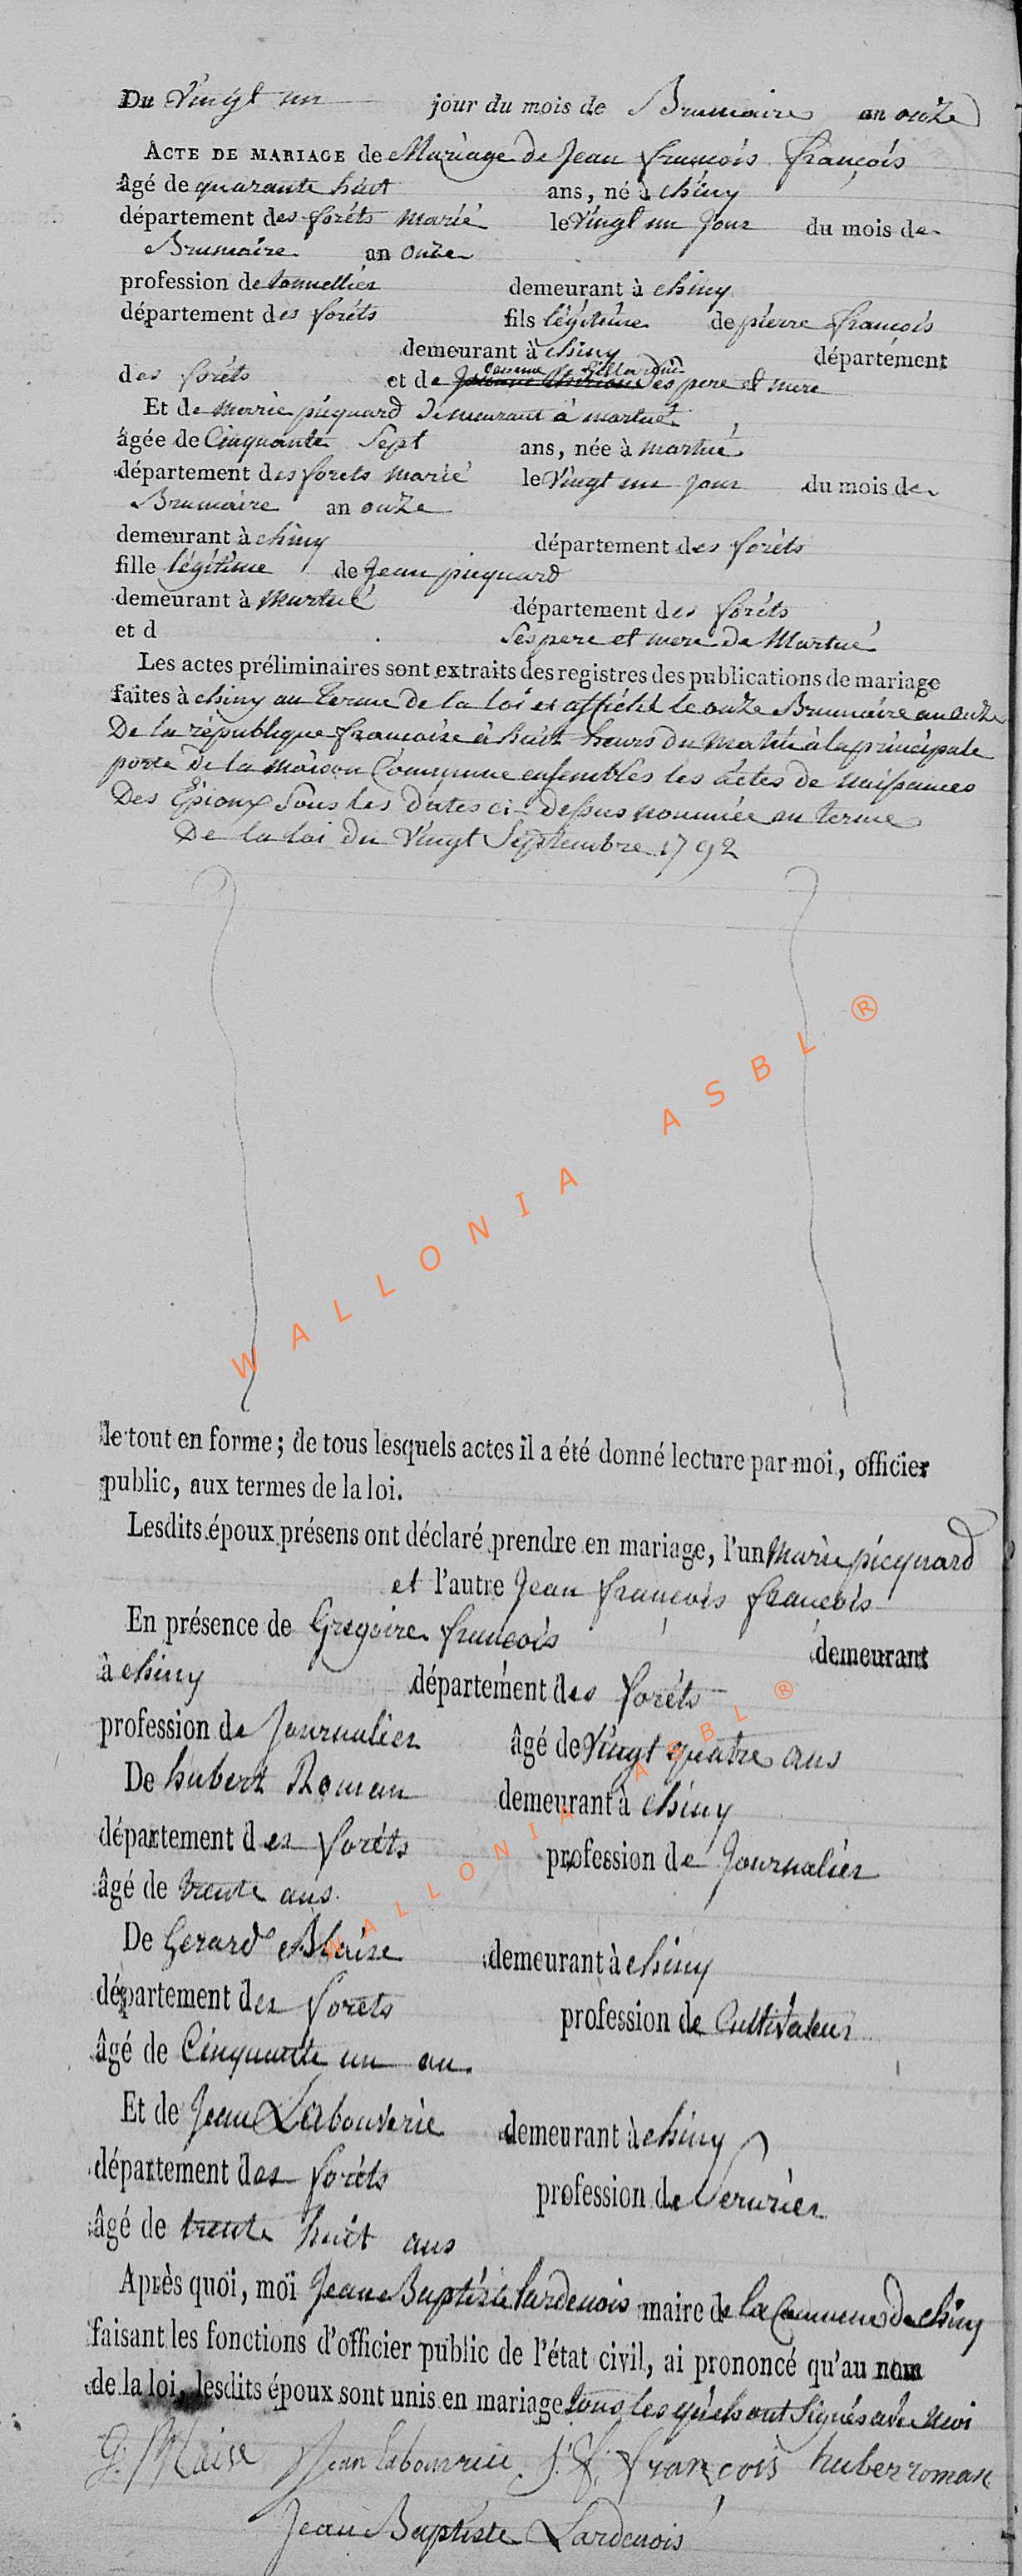 Du Vingt un jour du mois de Brumaire an onze
ACTE DE MARIAGE de Mariage de Jean françois françois
âgé de quarante huit ans, né à chiny
département des forêts marié le Vingt un jour du mois de
Brumaire an onze
profession de tonnellier demeurant à chiny
département des forêts fils légitime de pierre françois
demeurant à chiny département
des forêts et de ses pere et mere
Et de marie picquard demeurant à martué
âgée de Cinquante Sept ans, née à martué
département des forets marié le Vingt un jour du mois de
Brumaire an onze
demeurant à chiny département des forêts
fille légitime de Jean picquard
demeurant à Martué département des forêts
et d ses pere et mere de Martué
Les actes préliminaires sont extraits des registres des publications de mariage
faites à chiny au terme de la loi et affiché le onze Brumaire an onze
De la république françoise à huit heurs du Matin à la principale
porte de la maison Commune ensembles les actes de naissances
Des Epioux sous les dates ci-dessus nommée au terme
De la loi du Vingt Septembre 1792
WALLONIA ASBL ®
le tout en forme ; de tous lesquels actes il a été donné lecture par moi, officier
public, aux termes de la loi.
Lesdits époux présens ont déclaré prendre en mariage, l'un Marie picquard
et l'autre Jean françois françois
En présence de Gregoire françois demeurant
à chiny département des forêts
profession de Journalier âgé de Vingt quatre ans
De hubert Roman demeurant à chiny
département des forêts profession de Journalier
âgé de trente ans.
De Gerard Blaise demeurant à chiny
département des forets profession de Cultivateur
âgé de Cinquante un an.
Et de Jean Labouverie demeurant à chiny
département des forêts profession de Serurier
âgé de trente huit ans
Après quoi, moi Jean Baptiste lardenois maire de la Commune de chiny
faisant les fonctions d'officier public de l'état civil, ai prononcé qu'au nom
de la loi, lesdits époux sont unis en mariage tous les quels ont signés avec moi
G. Blaise Jean labouverie J. f. françois huber roman
Jean Baptiste Lardenois
WALLONIA ASBL ®